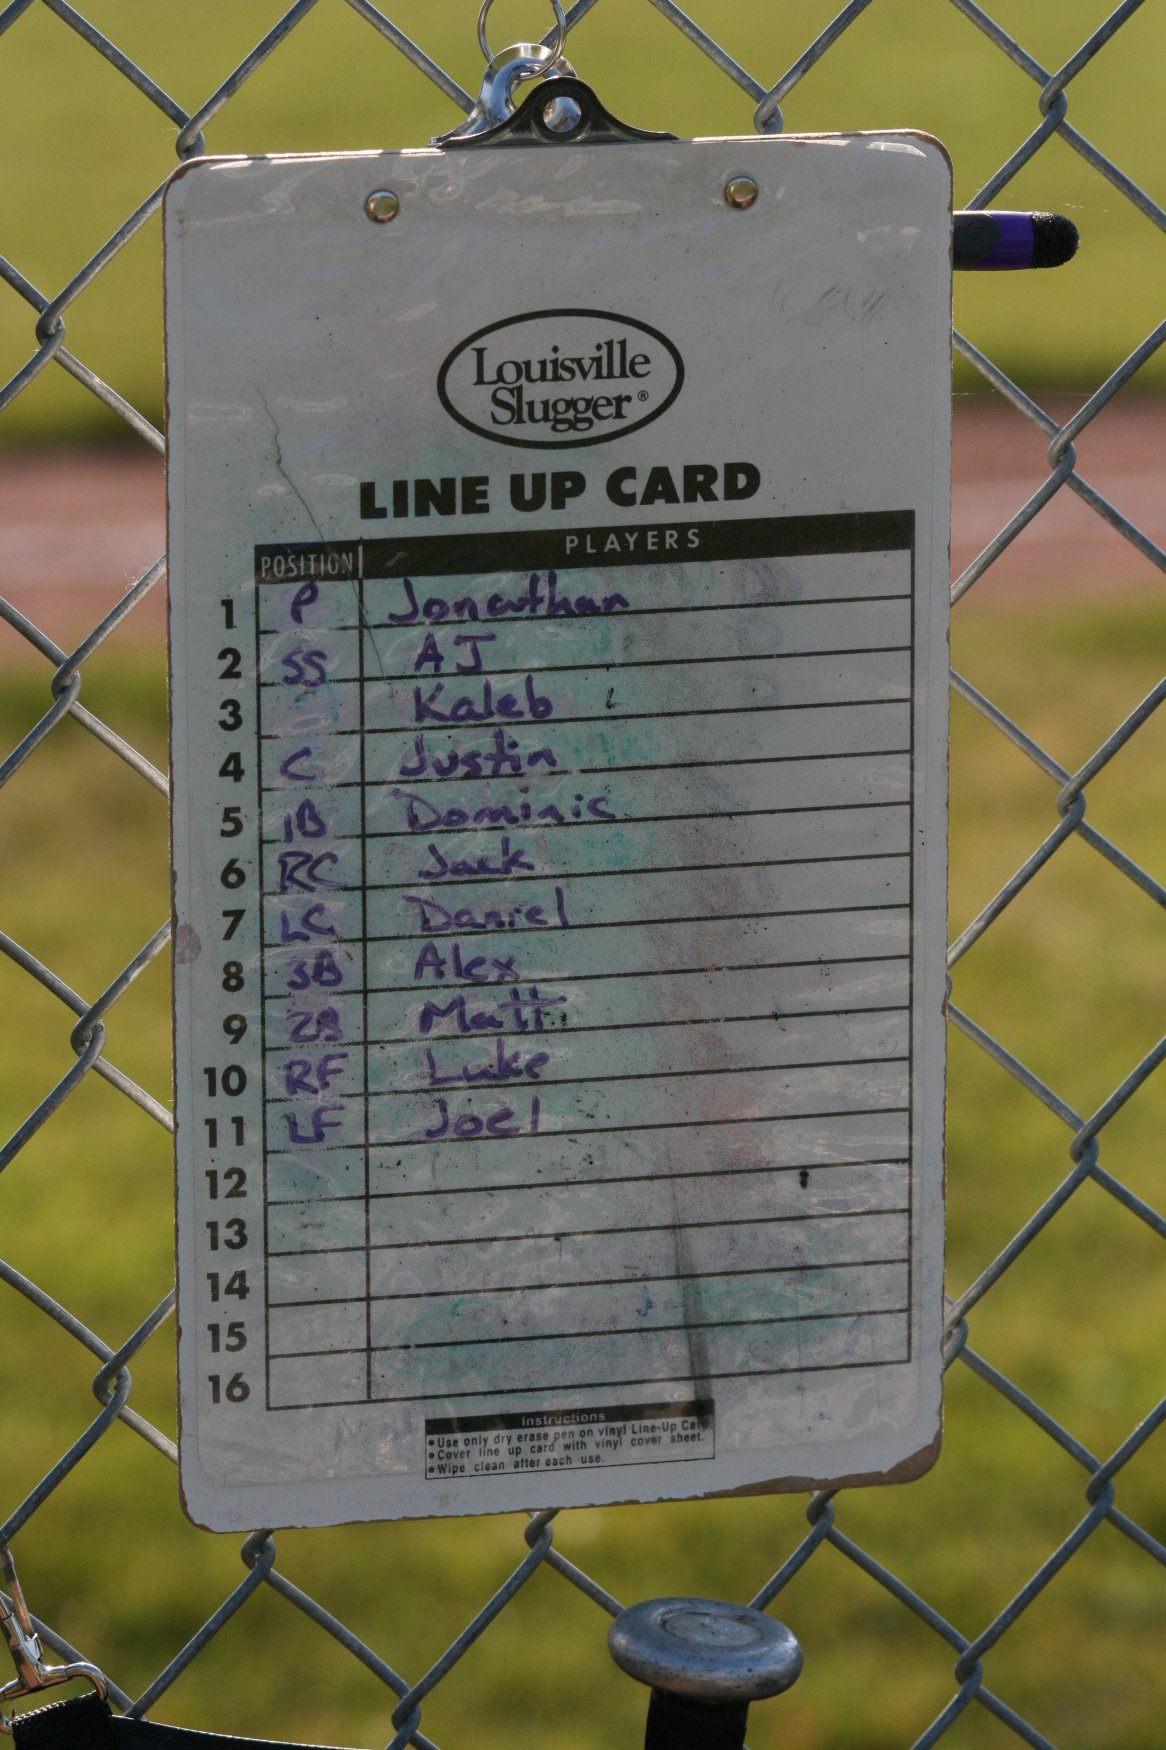 Louisville
Slugger®
LINE UP CARD
POSITION PLAYERS
1 P Jonathan
2 SS AJ
3 Kaleb
4 C Justin
5 1B Dominic
6 RC Jack
7 LC Daniel
8 3B Alex
9 2B Matt
10 RF Luke
11 LF Joel
12
13
14
15
16
Instructions
•Use only dry erase pen on vinyl Line-Up Card.
•Cover line up card with vinyl cover sheet.
•Wipe clean after each use.